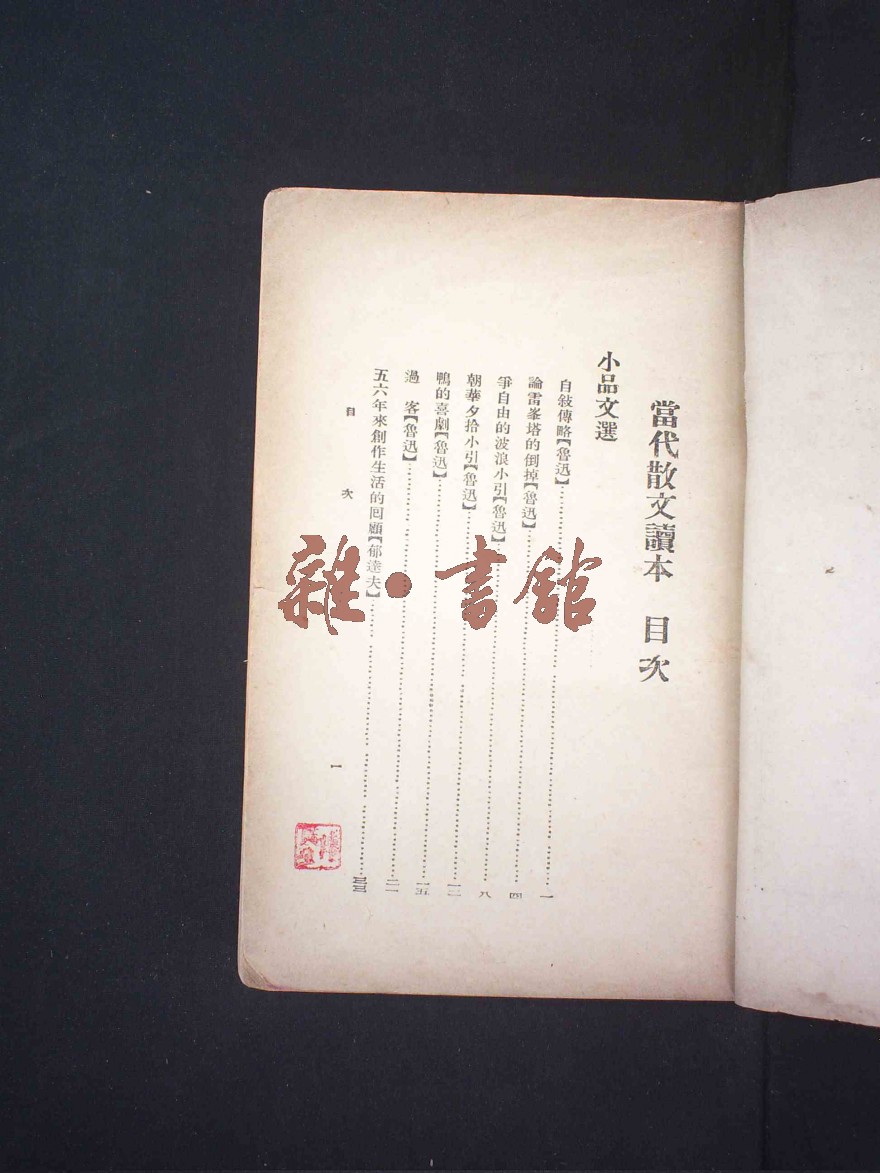 當代散文讀本　目次
小品文選
自敍傳略【魯迅】……………………一
論雷峯塔的倒掉【魯迅】……………………四
爭自由的波浪小引【魯迅】……………………八
朝華夕拾小引【魯迅】……………………一二
鴨的喜劇【魯迅】……………………一五
過　客【魯迅】……………………二一
五六年來創作生活的回顧【郁達夫】……………………三三
目　次　一
雜·書館